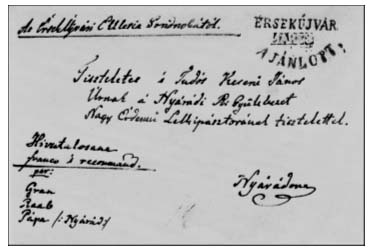 Az Érsekújvári
ÉRSEKÚJVÁR
AJÁNLOTT
Tiszteletes és Tudós Keserü János
Urnak a Nyárádi Gyülekezet
Nagy Érdemü Lelkipásztorának tisztelettel.
Hivatalosan
franco recommand.
per:
Gran
Raab
Pápa /: Nyárád /
Nyárádon